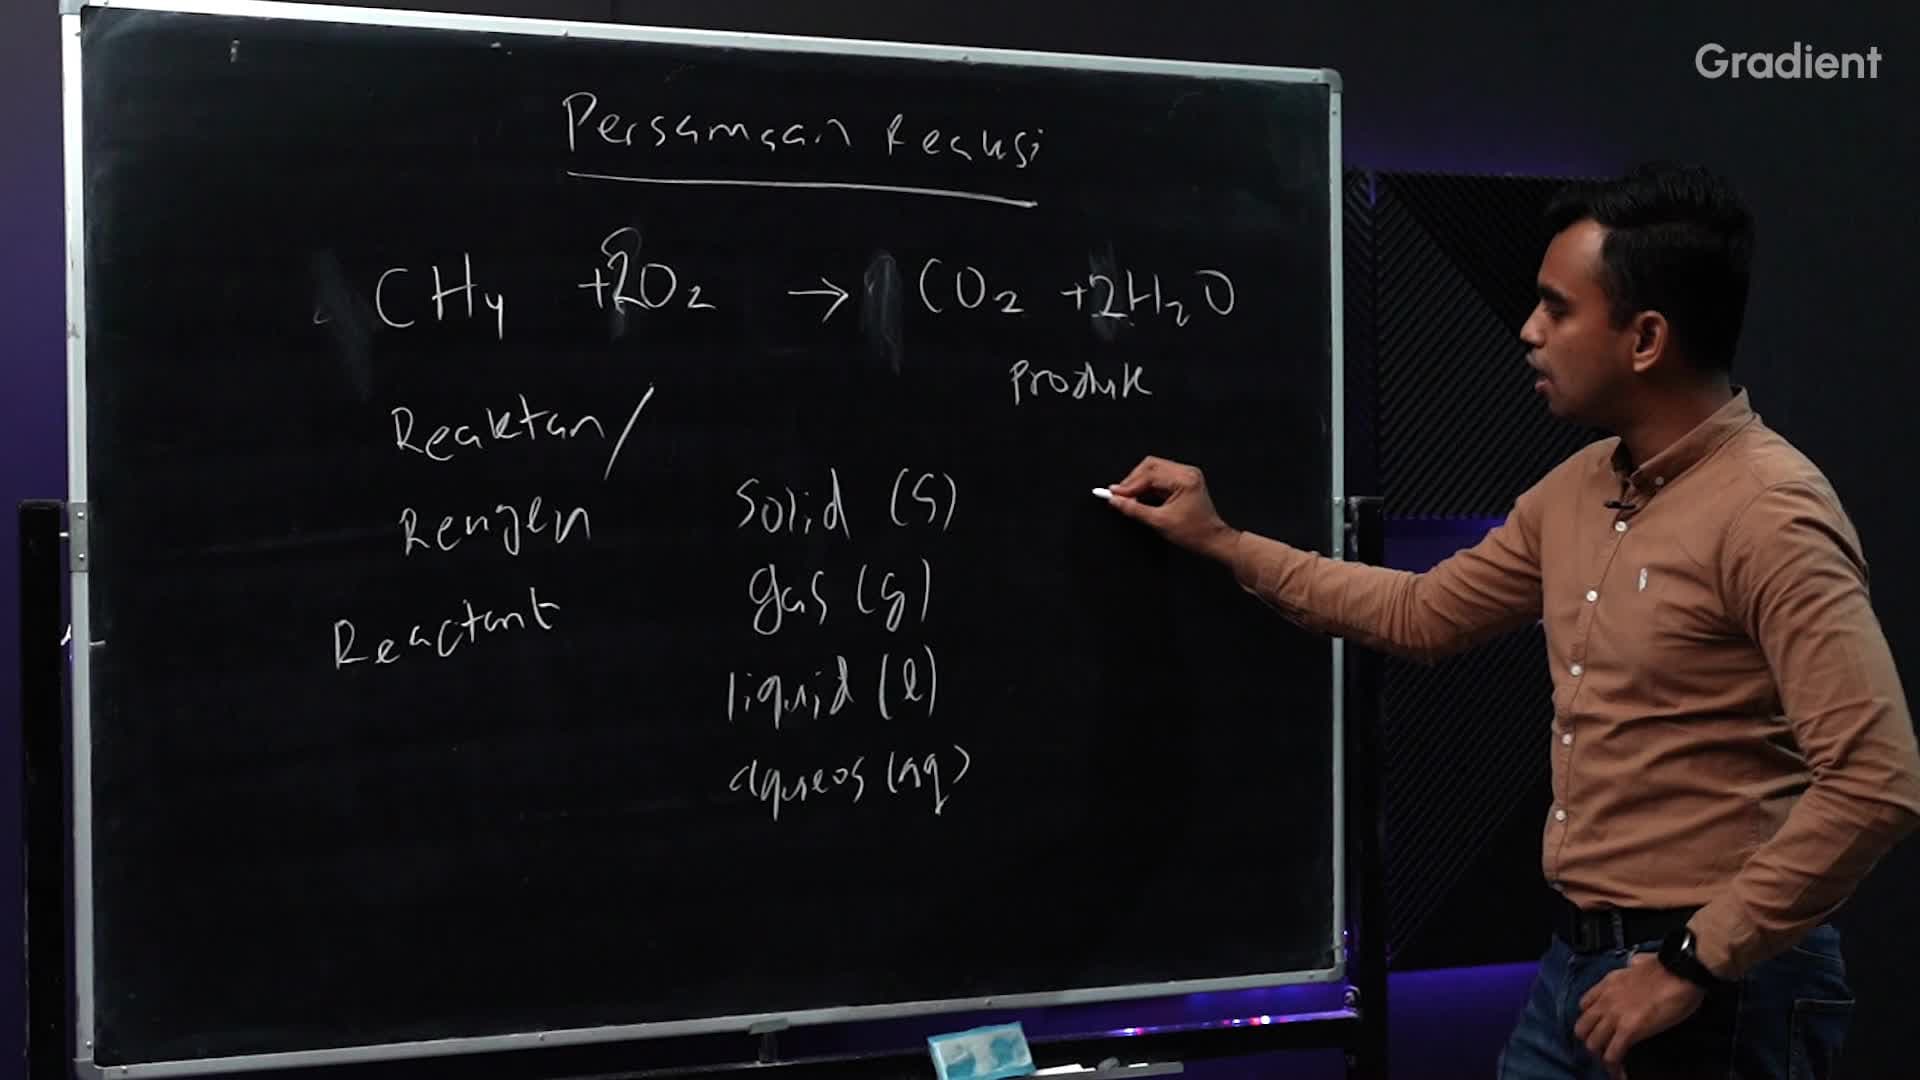 Gradient
Persamaan Reaksi
CH4 + 2O2 → CO2 + 2H2O
Produk
Reaktan/
Reagen
Reactant
Solid (s)
gas (g)
liquid (l)
aqueos (aq)